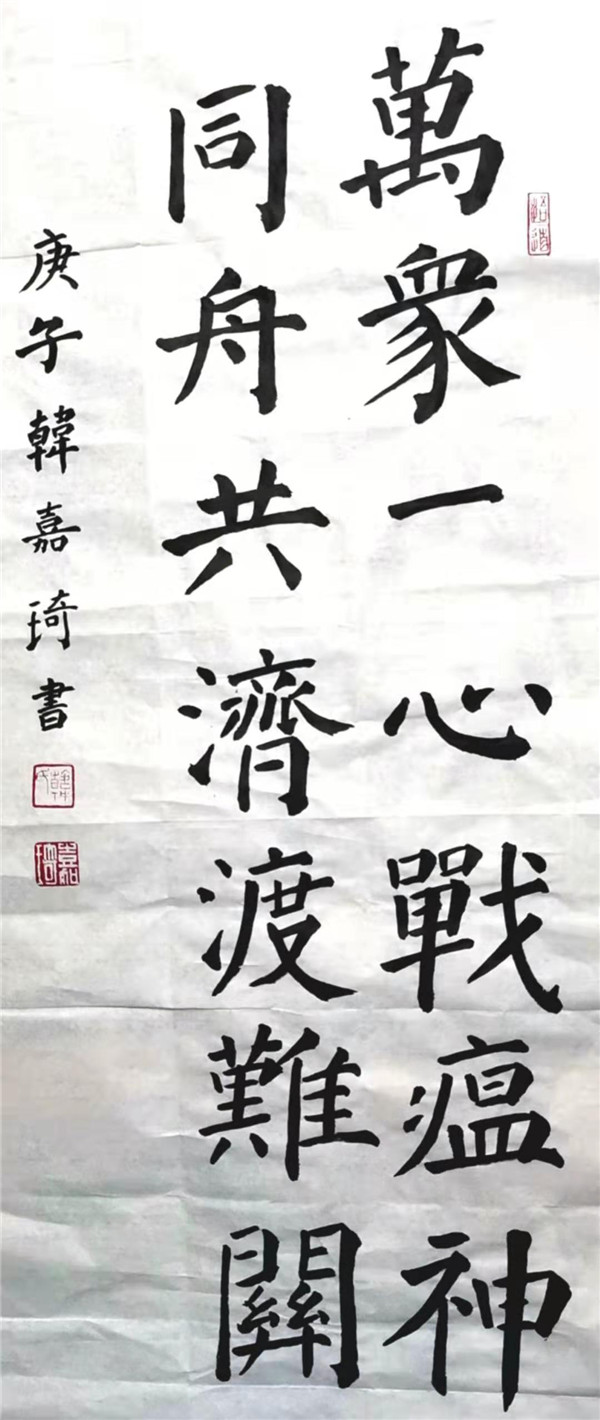 萬衆一心戰瘟神
同舟共濟渡難關
庚子韓嘉琦書
韓氏
嘉琦